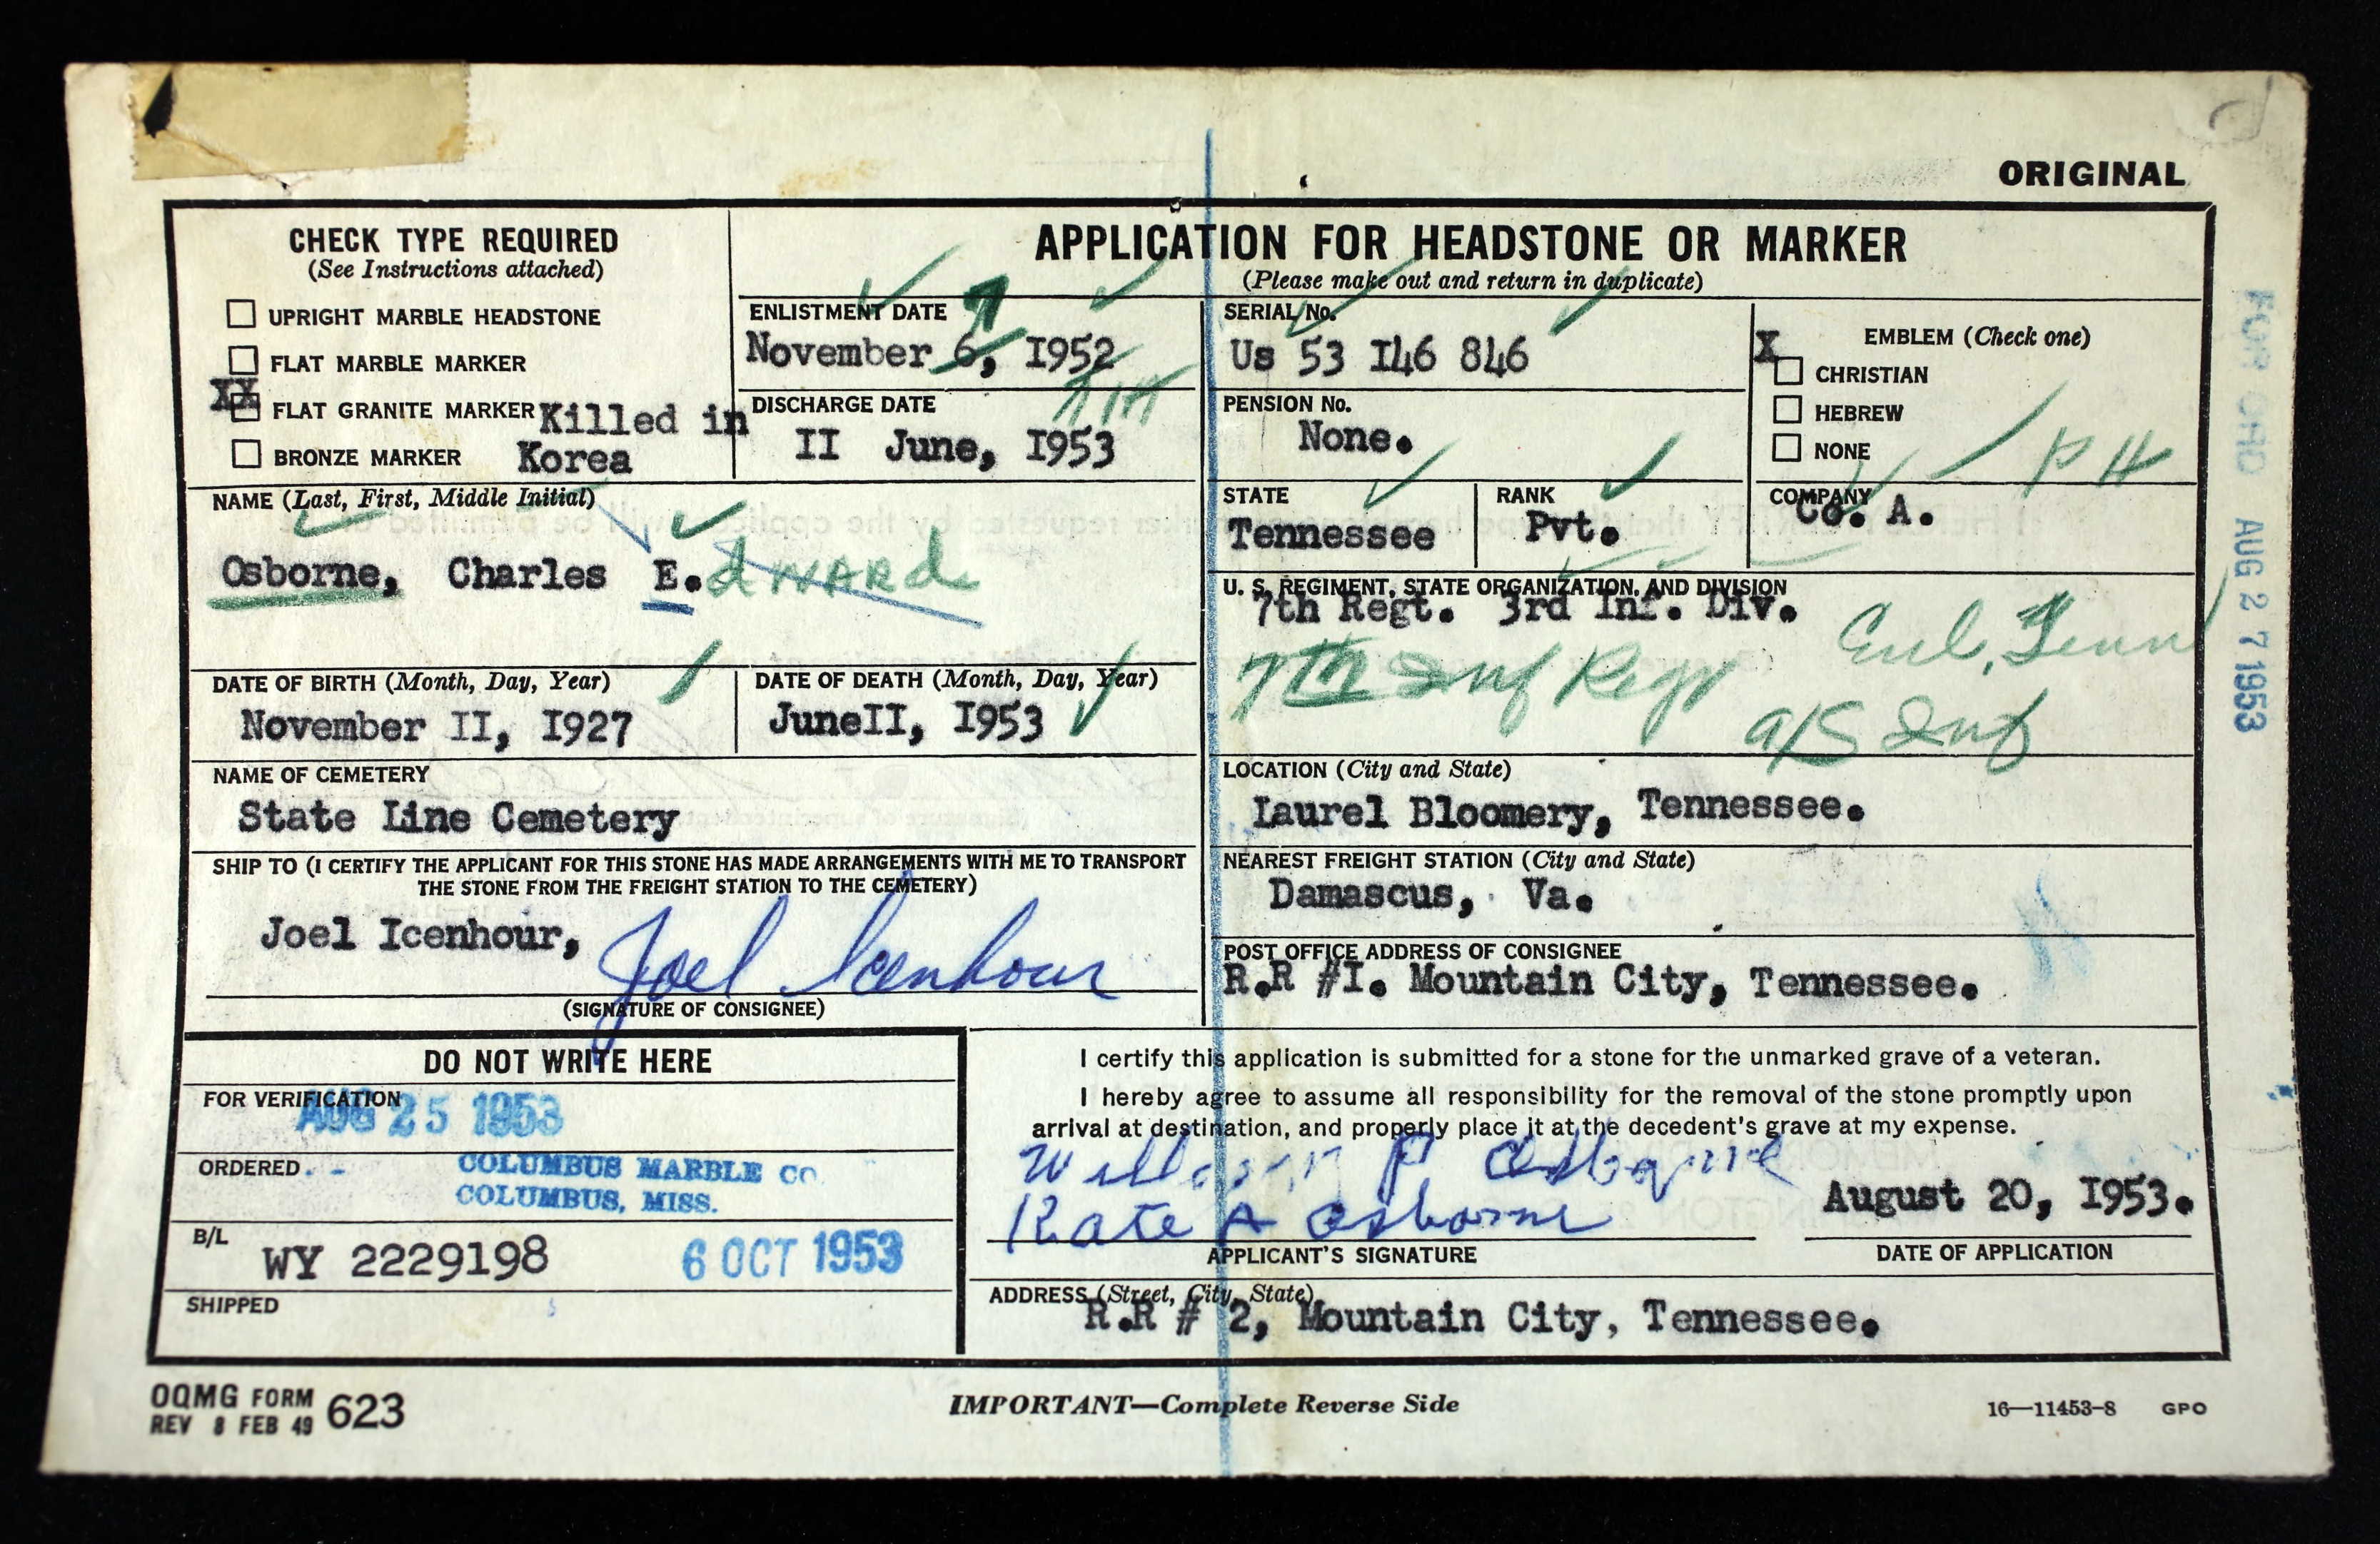 ORIGINAL
CHECK TYPE REQUIRED
(See Instructions attached)
UPRIGHT MARBLE HEADSTONE
FLAT MARBLE MARKER
XX
FLAT GRANITE MARKER Killed in
BRONZE MARKER Korea
APPLICATION FOR HEADSTONE OR MARKER
(Please make out and return in duplicate)
ENLISTMENT DATE 7
November 6, I952
DISCHARGE DATE
II June, I953
SERIAL No.
Us 53 I46 846
PENSION No.
None.
X EMBLEM (Check one)
CHRISTIAN
HEBREW
NONE
PH
NAME (Last, First, Middle Initial)
Osborne, Charles E.dwARd
STATE
Tennessee
RANK
Pvt.
COMPANY
Co. A.
U. S. REGIMENT, STATE ORGANIZATION, AND DIVISION
7th Regt. 3rd Inf. Div.
Enl. Tenn
7th Inf Regt
A/S Inf
DATE OF BIRTH (Month, Day, Year)
November II, I927
DATE OF DEATH (Month, Day, Year)
JuneII, I953
NAME OF CEMETERY
State Line Cemetery
LOCATION (City and State)
Laurel Bloomery, Tennessee.
SHIP TO (I CERTIFY THE APPLICANT FOR THIS STONE HAS MADE ARRANGEMENTS WITH ME TO TRANSPORT
THE STONE FROM THE FREIGHT STATION TO THE CEMETERY)
Joel Icenhour,
Joel Icenhour
(SIGNATURE OF CONSIGNEE)
NEAREST FREIGHT STATION (City and State)
Damascus, Va.
POST OFFICE ADDRESS OF CONSIGNEE
R.R #I. Mountain City, Tennessee.
DO NOT WRITE HERE
FOR VERIFICATION
AUG 25 1953
ORDERED
COLUMBUS MARBLE CO.
COLUMBUS, MISS.
B/L
WY 2229198 6 OCT 1953
SHIPPED
I certify this application is submitted for a stone for the unmarked grave of a veteran.
I hereby agree to assume all responsibility for the removal of the stone promptly upon
arrival at destination, and properly place it at the decedent's grave at my expense.
P Osborne
Kate A Osborne
August 20, I953.
APPLICANT'S SIGNATURE
DATE OF APPLICATION
ADDRESS (Street, City, State)
R.R # 2, Mountain City, Tennessee.
OQMG FORM 623
REV 8 FEB 49
IMPORTANT—Complete Reverse Side
16—11453-8 GPO
AUG 27 1953